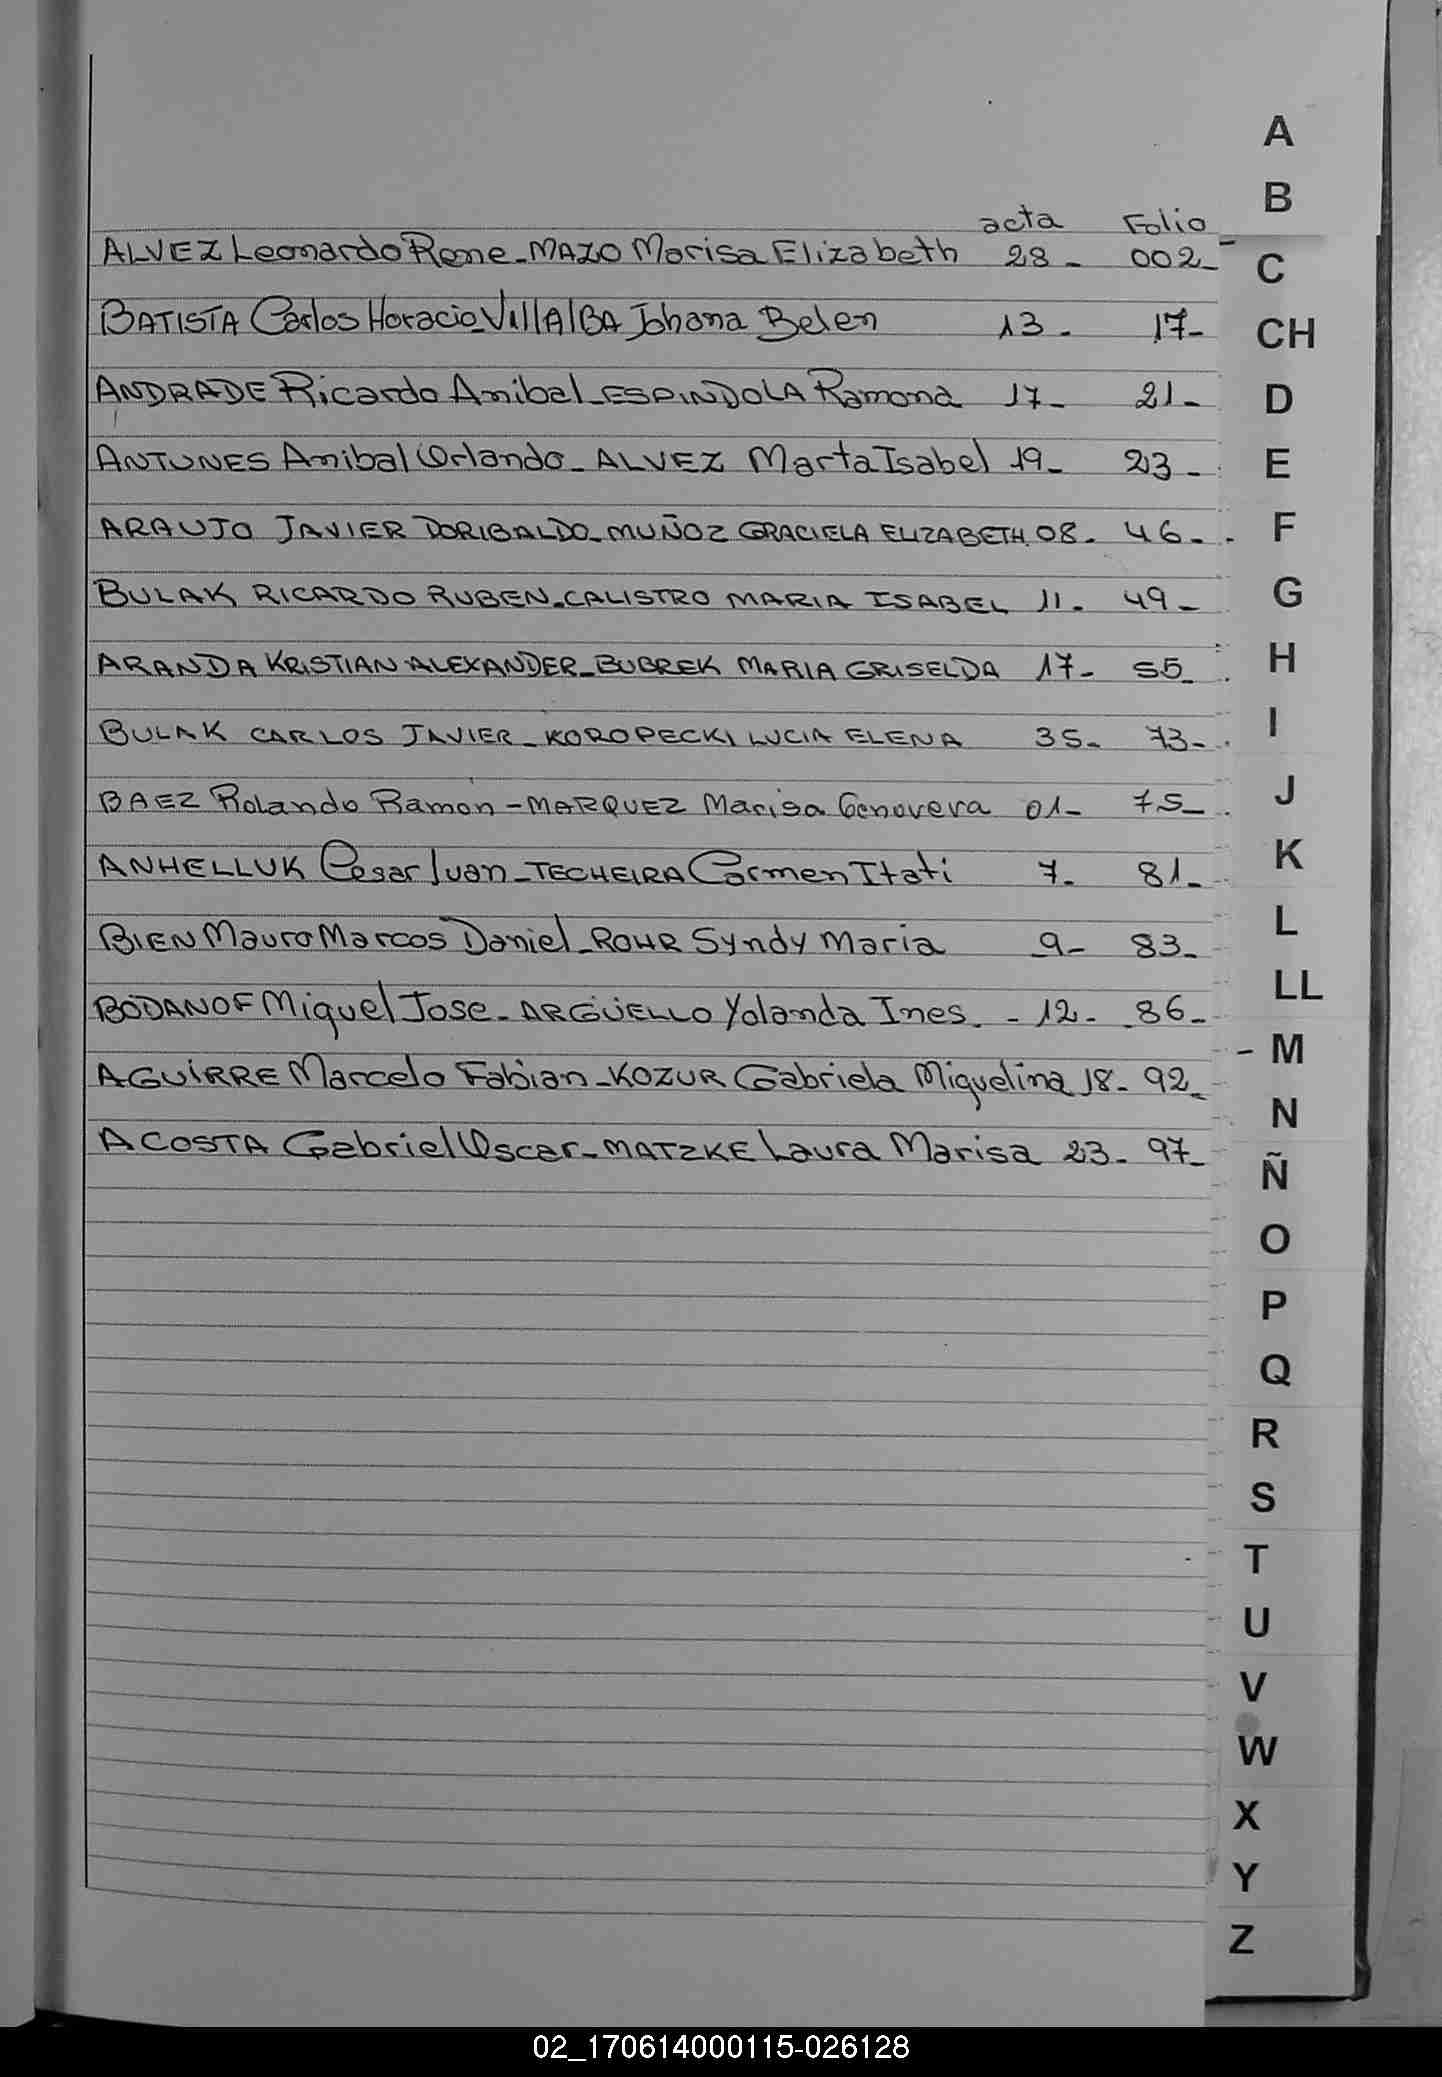 acta Folio
ALVEZ Leonardo Rene - MAZO Marisa Elizabeth 28 - 002 -
BATISTA Carlos Horacio - VillAlBA Johana Belen 13 - 17 -
ANDRADE Ricardo Anibal - ESPINDOLA Ramona 17 - 21 -
ANTUNES Anibal Orlando - ALVEZ Marta Isabel 19 - 23 -
ARAUJO JAVIER DORIBALDO - MUÑOZ GRACIELA ELIZABETH 08 - 46 -
BULAK RICARDO RUBEN - CALISTRO MARIA ISABEL 11 - 49 -
ARANDA KRISTIAN ALEXANDER - BUBREK MARIA GRISELDA 17 - 55 -
BULAK CARLOS JAVIER - KOROPECKI LUCIA ELENA 35 - 73 -
BAEZ Rolando Ramon - MARQUEZ Marisa Genoveva 01 - 75 -
ANHELLUK Cesar Juan - TECHEIRA Carmen Itati 7 - 81 -
BIEN Mauro Marcos Daniel - ROHR Syndy Maria 9 - 83 -
BODANOF Miguel Jose - ARGÜELLO Yolanda Ines. - 12 - 86 -
AGUIRRE Marcelo Fabian - KOZUR Gabriela Miguelina 18 - 92 -
ACOSTA Gabriel Oscar - MATZKE Laura Marisa 23 - 97 -
A
B
C
CH
D
E
F
G
H
I
J
K
L
LL
M
N
Ñ
O
P
Q
R
S
T
U
V
W
X
Y
Z
02_170614000115-026128